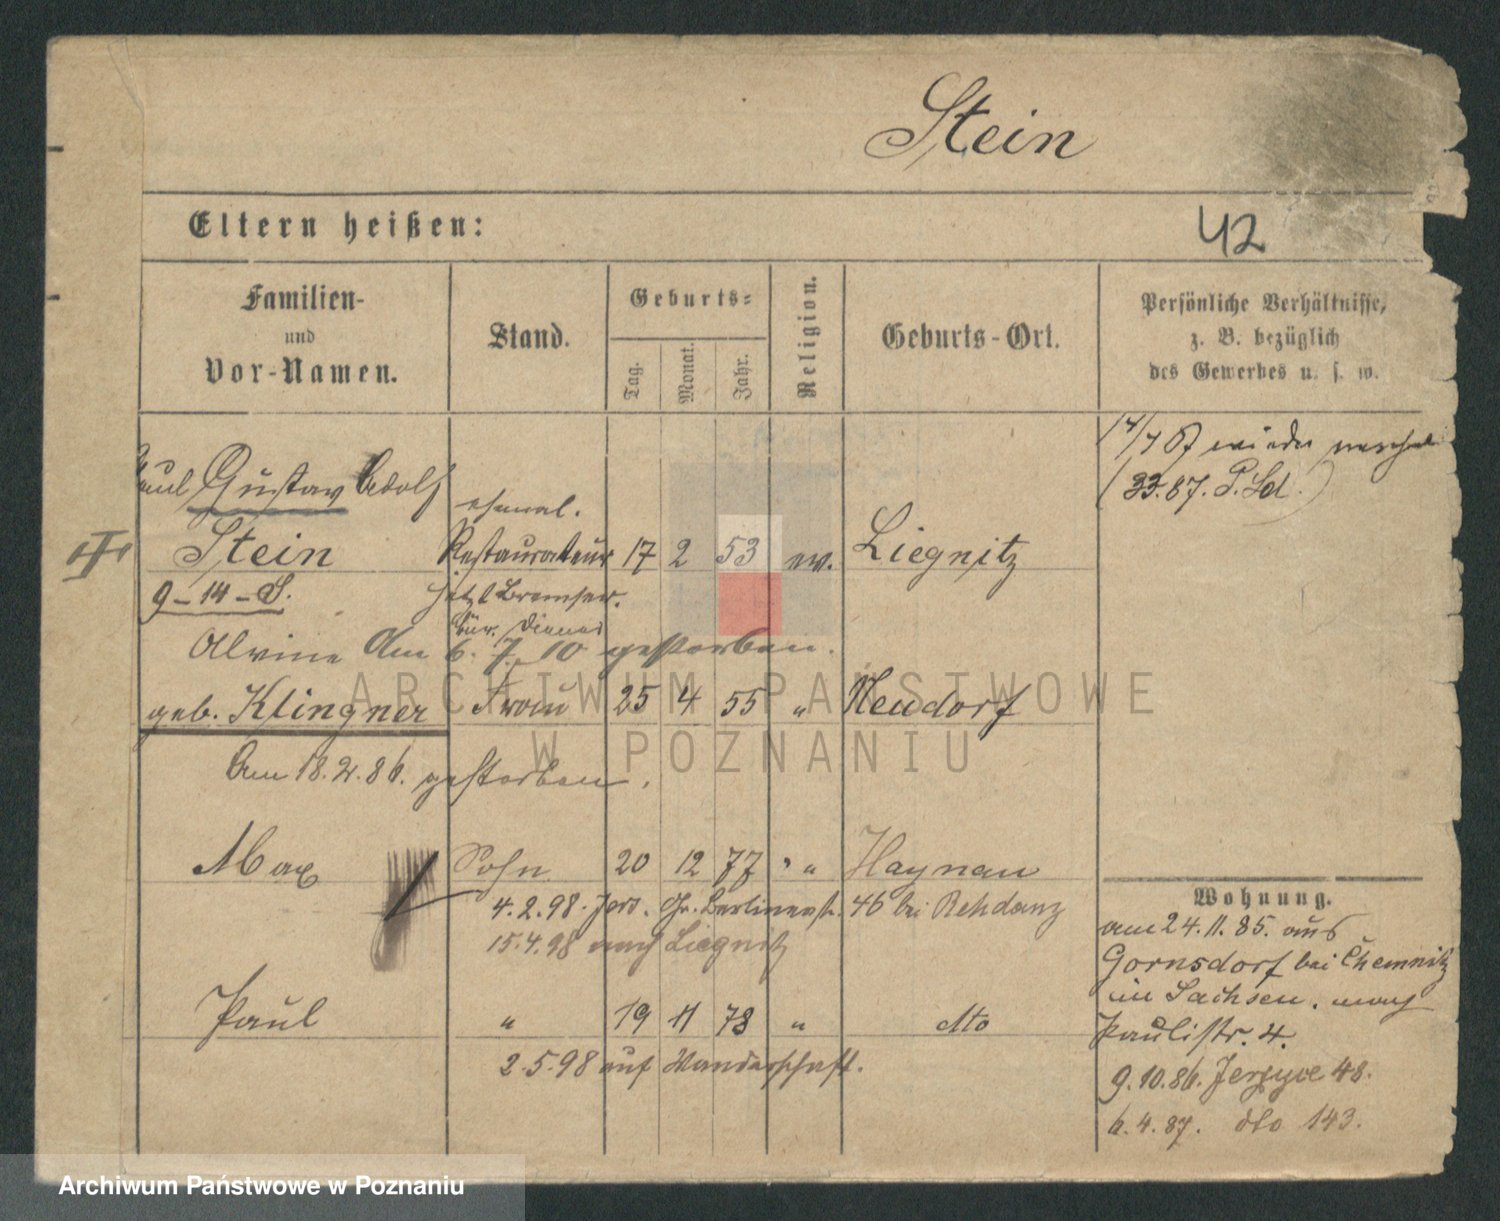 Stein
Eltern heißen:
42
Familien-
und
Vor-Namen.
Stand.
Geburts-
Tag.
Monat.
Jahr.
Religion.
Geburts-Ort.
Persönliche Verhältnisse,
z. B. bezüglich
des Gewerbes u. s. w.
Paul Gustav Adolf
Stein
9-14-
ehemal.
Restaurateur 17 2 53 ev. Liegnitz
jetzt Bremser
Am 6. 7. 10 gestorben.
Alvine
geb. Klingner Frau 25 4 55 " Neudorf
Am 18.2.86. gestorben.
Max Sohn 20 12 77 " Haynau
4.2.98. Jers. Gr. Berlinerstr. 46 bei Rehdanz
15.4.98 nach Liegnitz
Paul " 19 11 78 " dto
2.5.98 auf Wanderschaft.
wieder
(33.87. P. )
Wohnung.
am 24.11.85. aus
Gornsdorf bei Chemnitz
in Sachsen. nach
Paulistr. 4.
9.10.86. Jerzyce 48.
6.4.87. dto 143.
ARCHIWUM PAŃSTWOWE
W POZNANIU
Archiwum Państwowe w Poznaniu